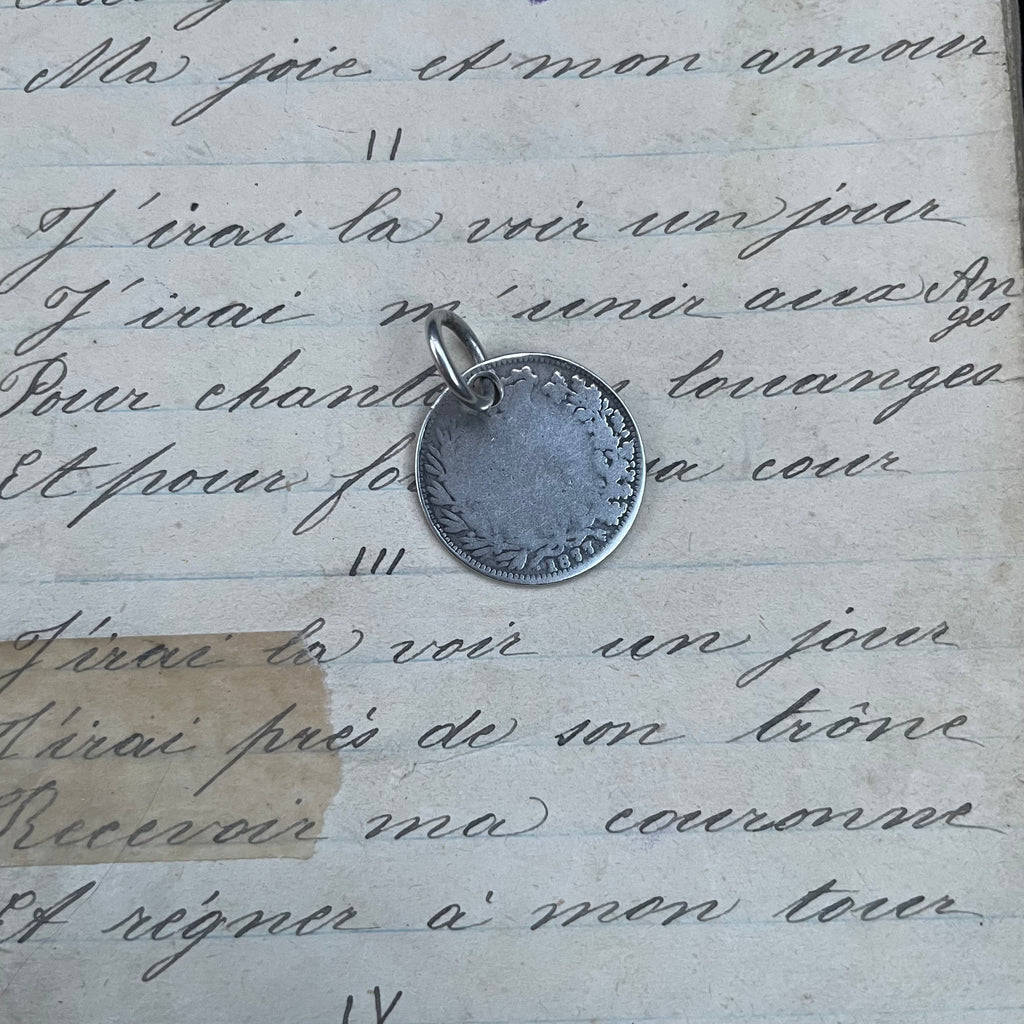 Ma joie et mon amour
II
J'irai la voir un jour
J'irai m'unir aux Anges
Pour chant louanges
Et pour fo a cour
III
J'irai la voir un jour
J'irai prés de son trône
Recevoir ma couronne
Et régner à mon tour
IV
.1877